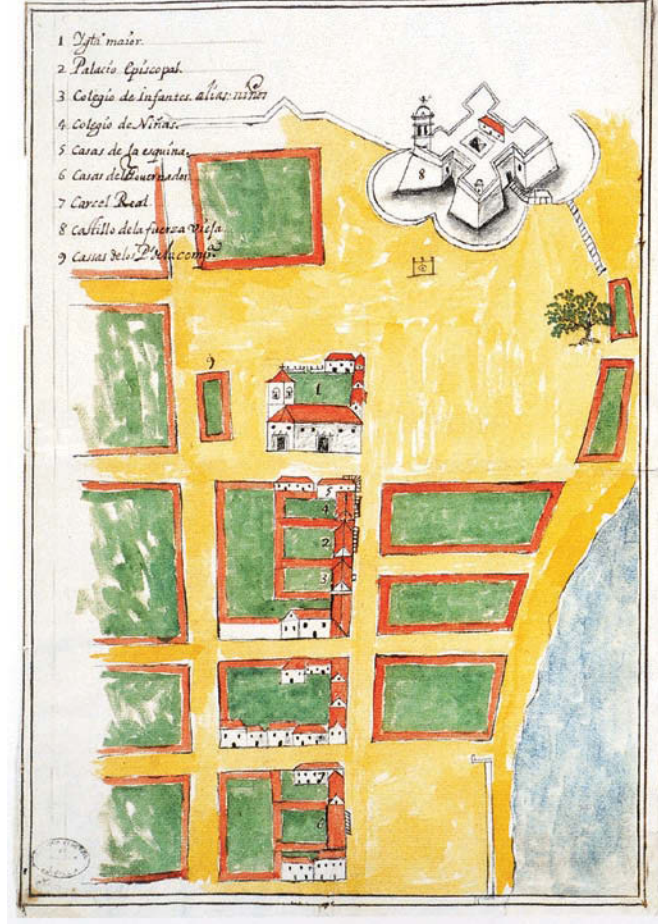 1 Ygta maior.
2 Palacio Episcopal.
3 Colegio de infantes. alias. niños
4 Colegio de Niñas.
5 Casas de la esquina.
6 Casas del Governador
7 Carcel Real.
8 Castillo de la fuerza vieja
9 Cassas de los Ps de la
8
9
1
5
4
2
3
7
6